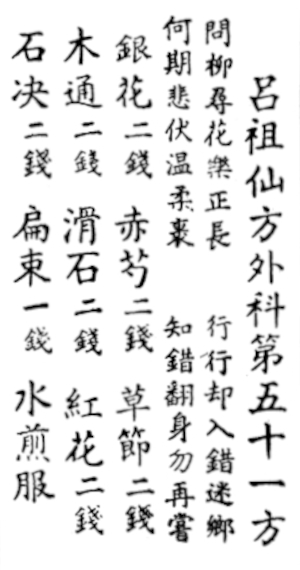 呂祖仙方外科第五十一方
問柳尋花樂正長　行行却入錯迷鄉
何期悲伏温柔裹　知錯翻身勿再嘗
銀花二錢　赤芍二錢　草節二錢
木通二錢　滑石二錢　紅花二錢
石决二錢　扁束一錢　水煎服